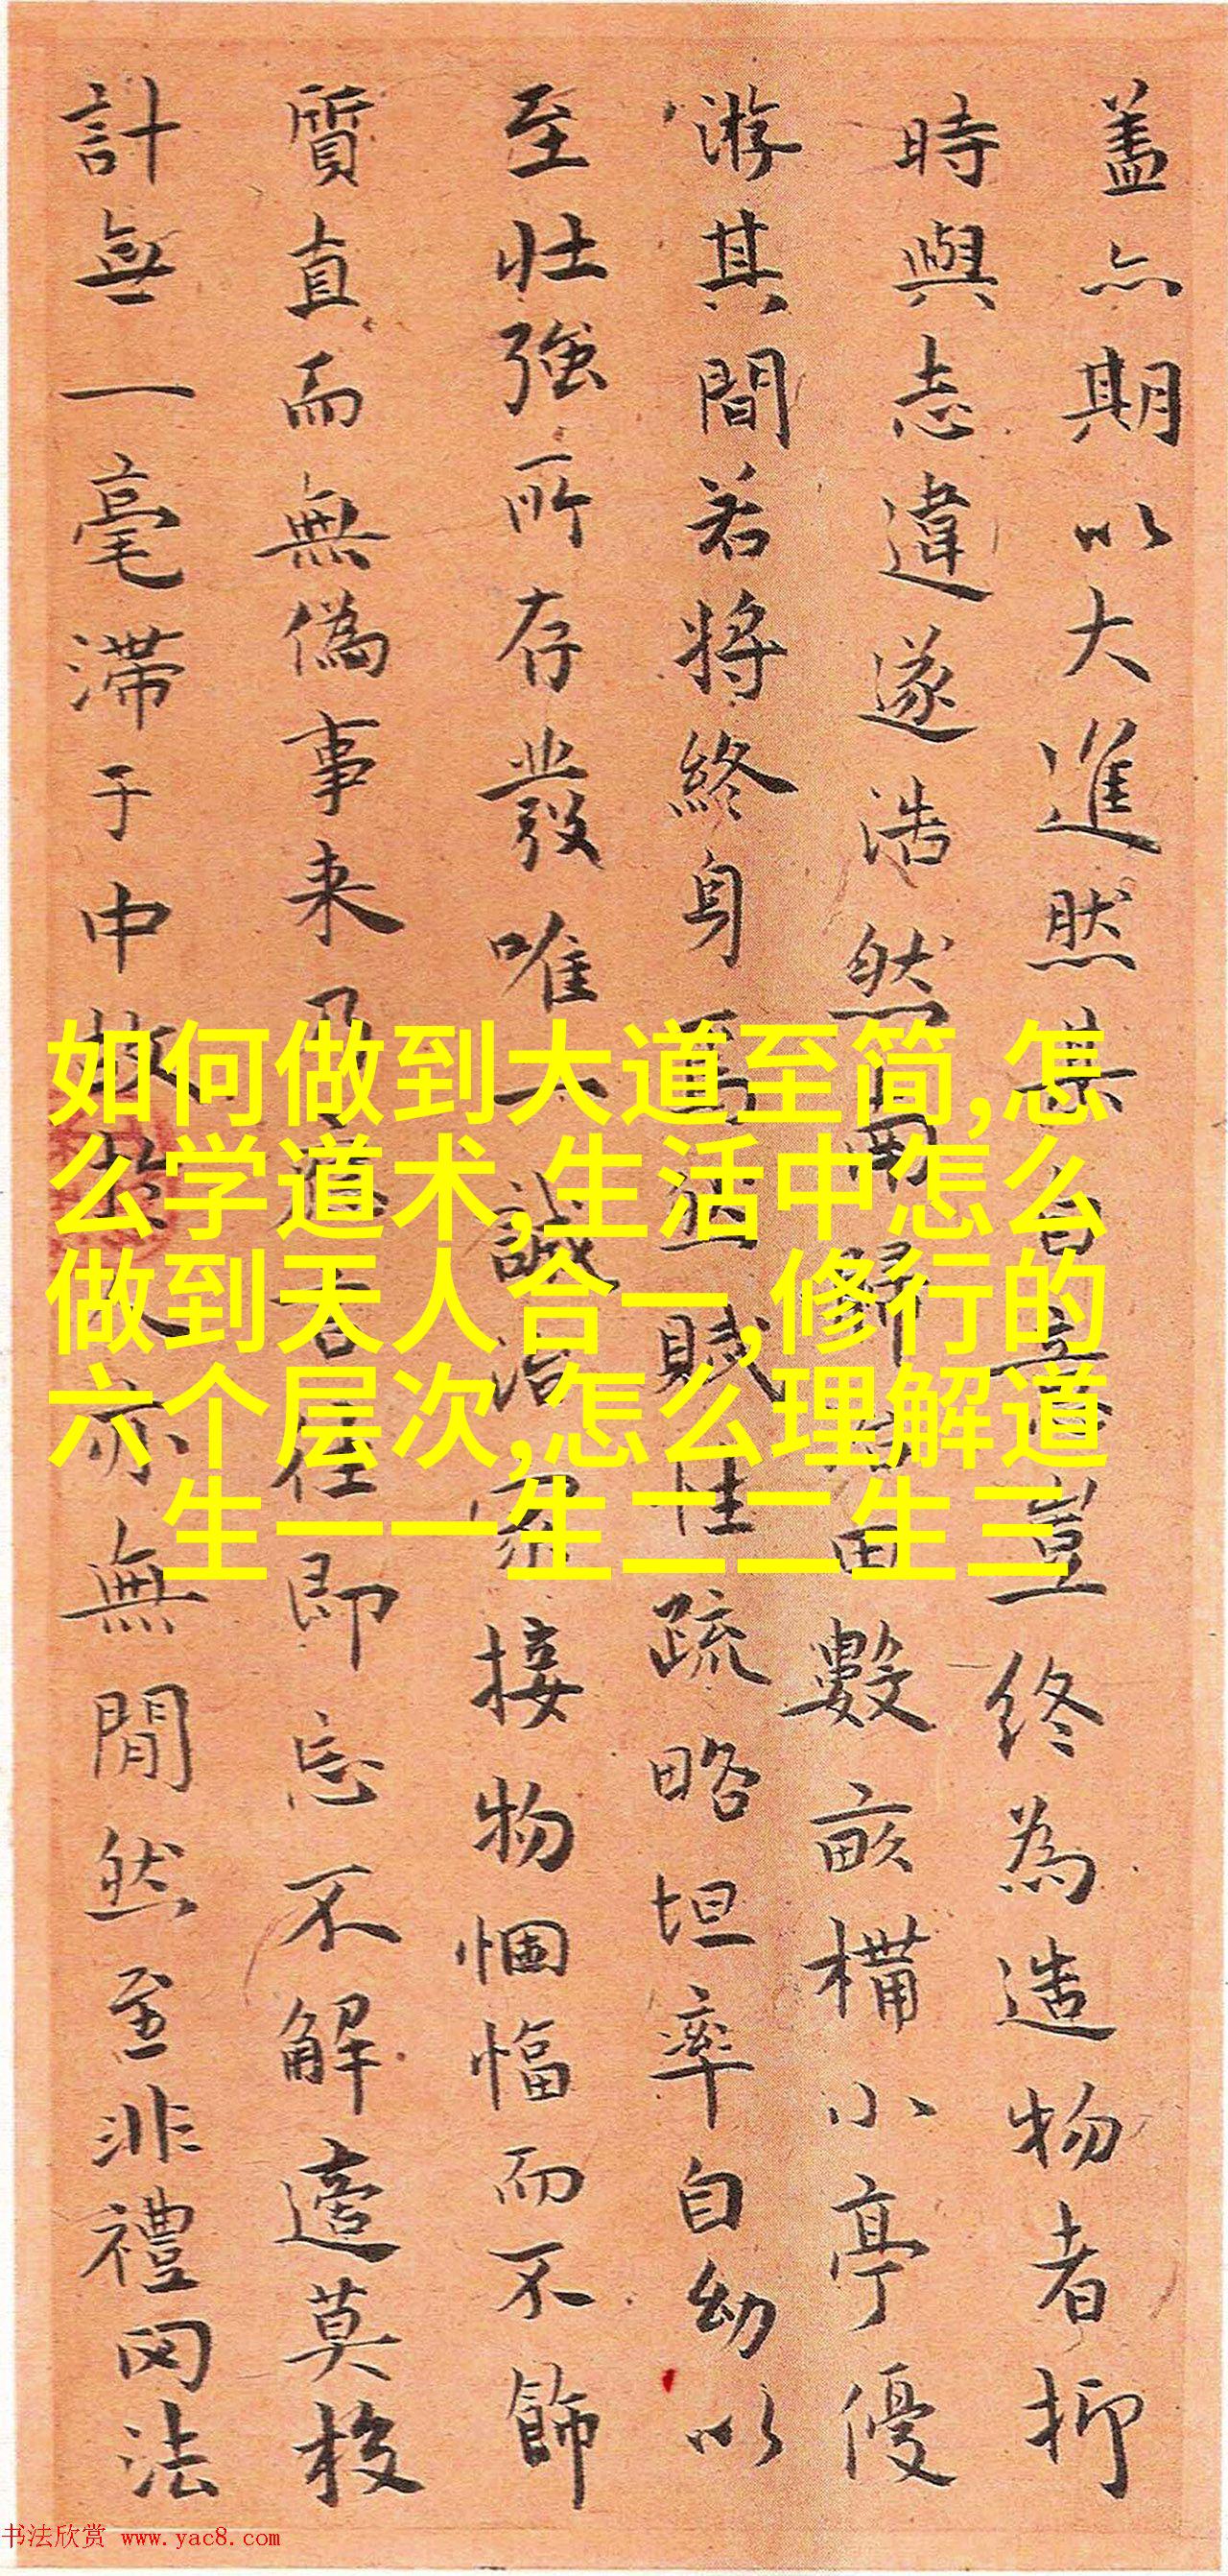 蓋亦期以大進然其自喜豈終為造物者抑
時與志違遂浩然南歸治田數畝構小亭優
游其間若將終身焉並賦性疏略坦率自幼以
至壯強所存發唯一誠治家接物悃愊而不飾
質直而無偽事来乃應去住即忘不解逆莫校
計無一毫滞于中故出入亦無閒然至非禮罔法
如何做到大道至简,怎
么学道术,生活中怎么
做到天人合一,修行的
六个层次,怎么理解道
生一一生二二生三
书法欣赏 www.yac8.com